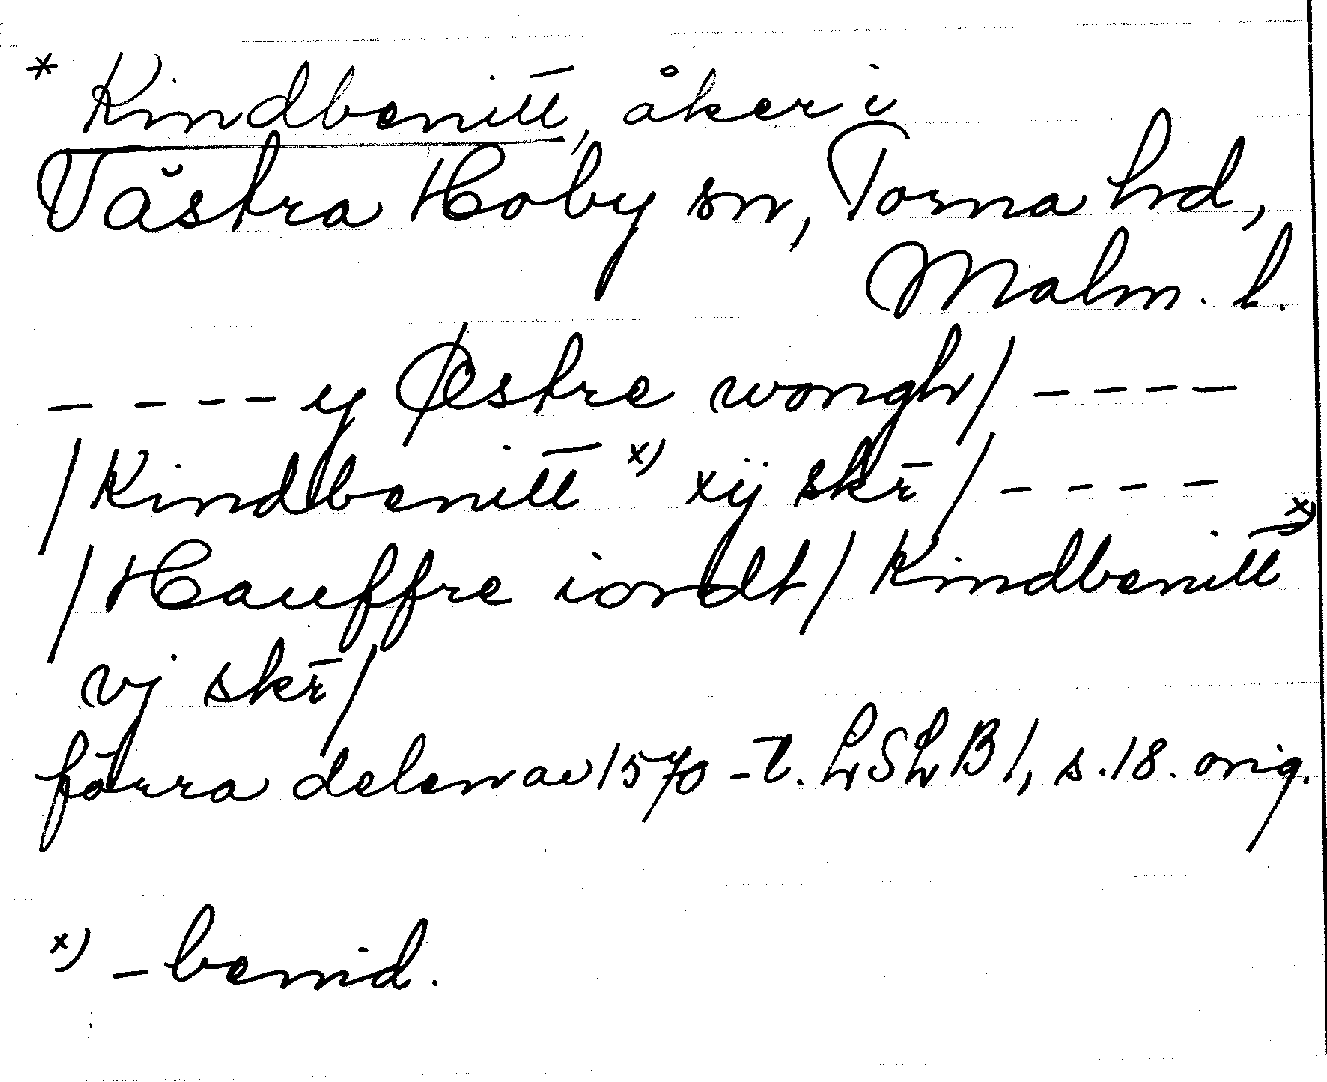 * Kindbenitt, åker i
Västra Hoby sn, Torna hd,
Malm. l.
- - - - y Østre wongh/ - - - -
/Kindbenitt x) xij skr̄/ - - - -
/Hauffre iordt/ Kindbenitt x)
vj skr̄/
förra delen av 1570-t. LSLB 1, s. 18. orig.
x) -benid.